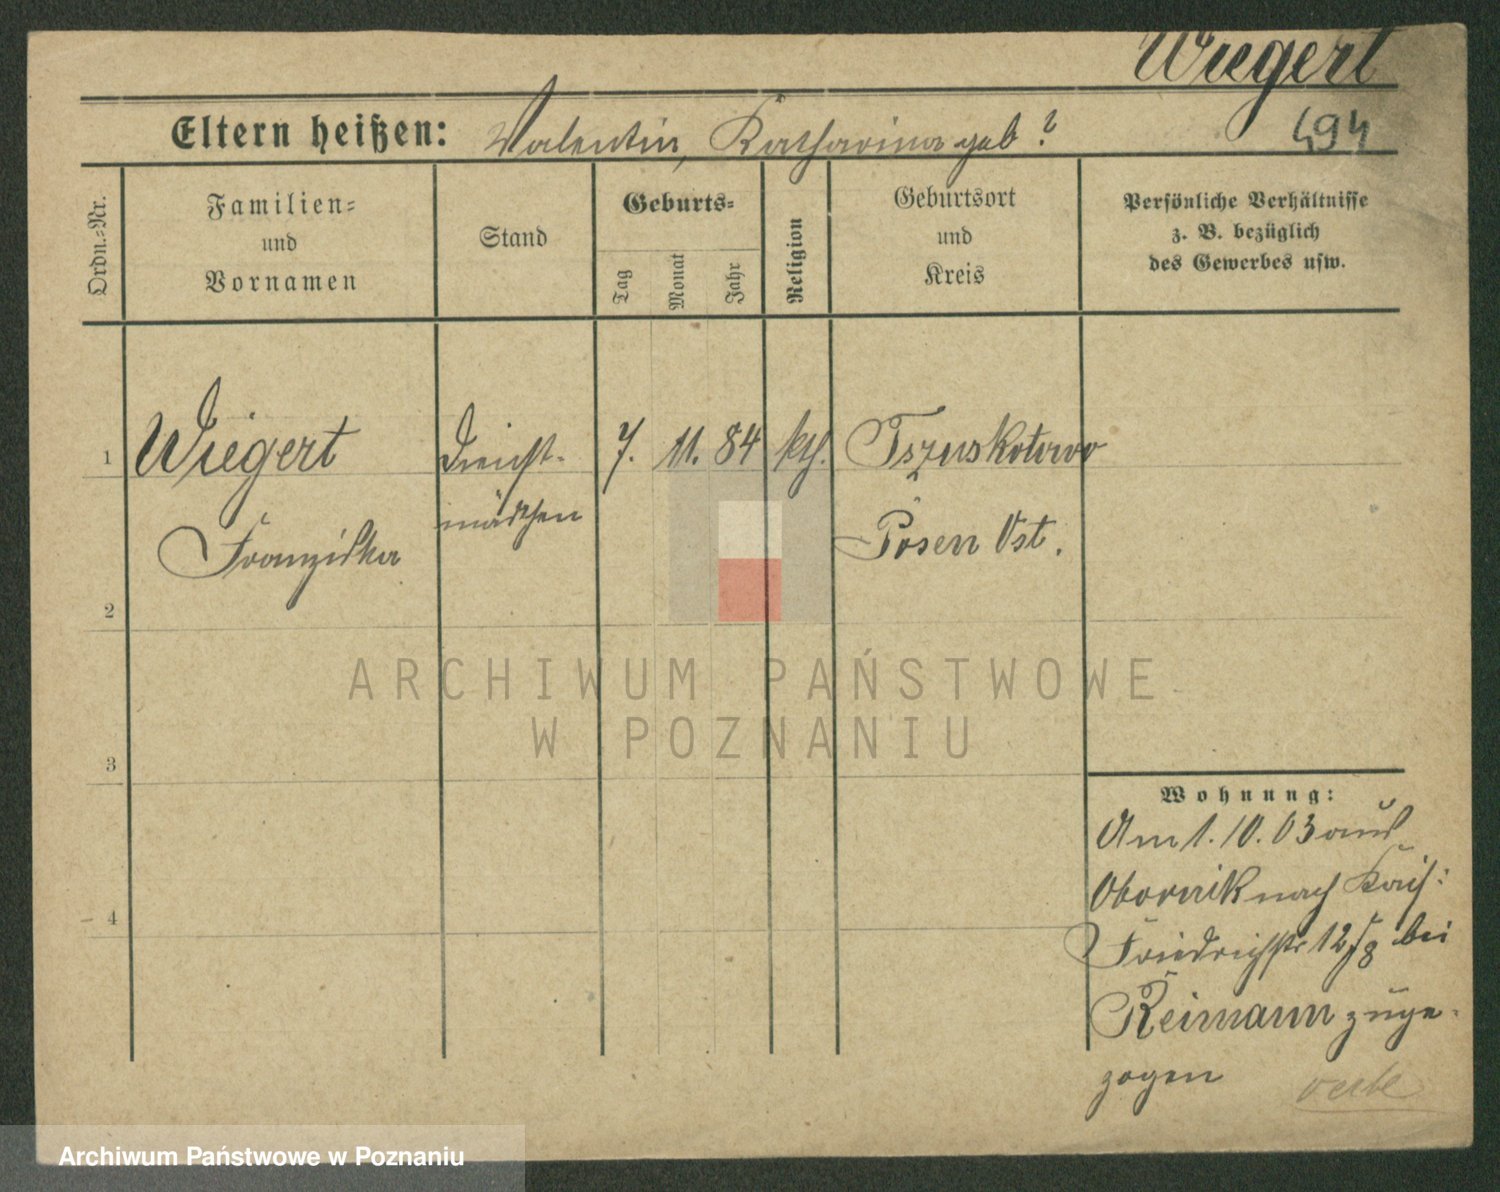 Wiegert
494
Eltern heißen: Valentin, Katharina geb ?
Ordn.-Nr.
Familien-
und
Vornamen
Stand
Geburts-
Tag
Monat
Jahr
Religion
Geburtsort
und
Kreis
Persönliche Verhältnisse
z. B. bezüglich
des Gewerbes usw.
1 Wiegert Dienst- 7. 11. 84 kth.
mädchen
Franziska
Posen Ost.
2
3
4
Wohnung:
Am 1. 10. 03 aus
Obornik nach Kais:
Friedrichstr 12 bei
Reimann zuge-
zogen
ARCHIWUM PAŃSTWOWE
W POZNANIU
Archiwum Państwowe w Poznaniu